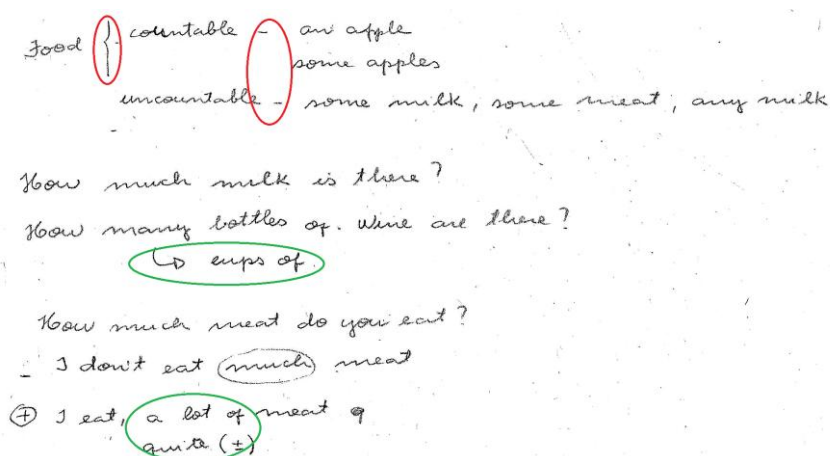 Food { countable - an apple
some apples
uncountable - some milk, some meat, any milk
How much milk is there?
How many bottles of. wine are there?
↳ cups of
How much meat do you eat?
- I don't eat much meat
⊕ I eat, a lot of meat
quite (±)